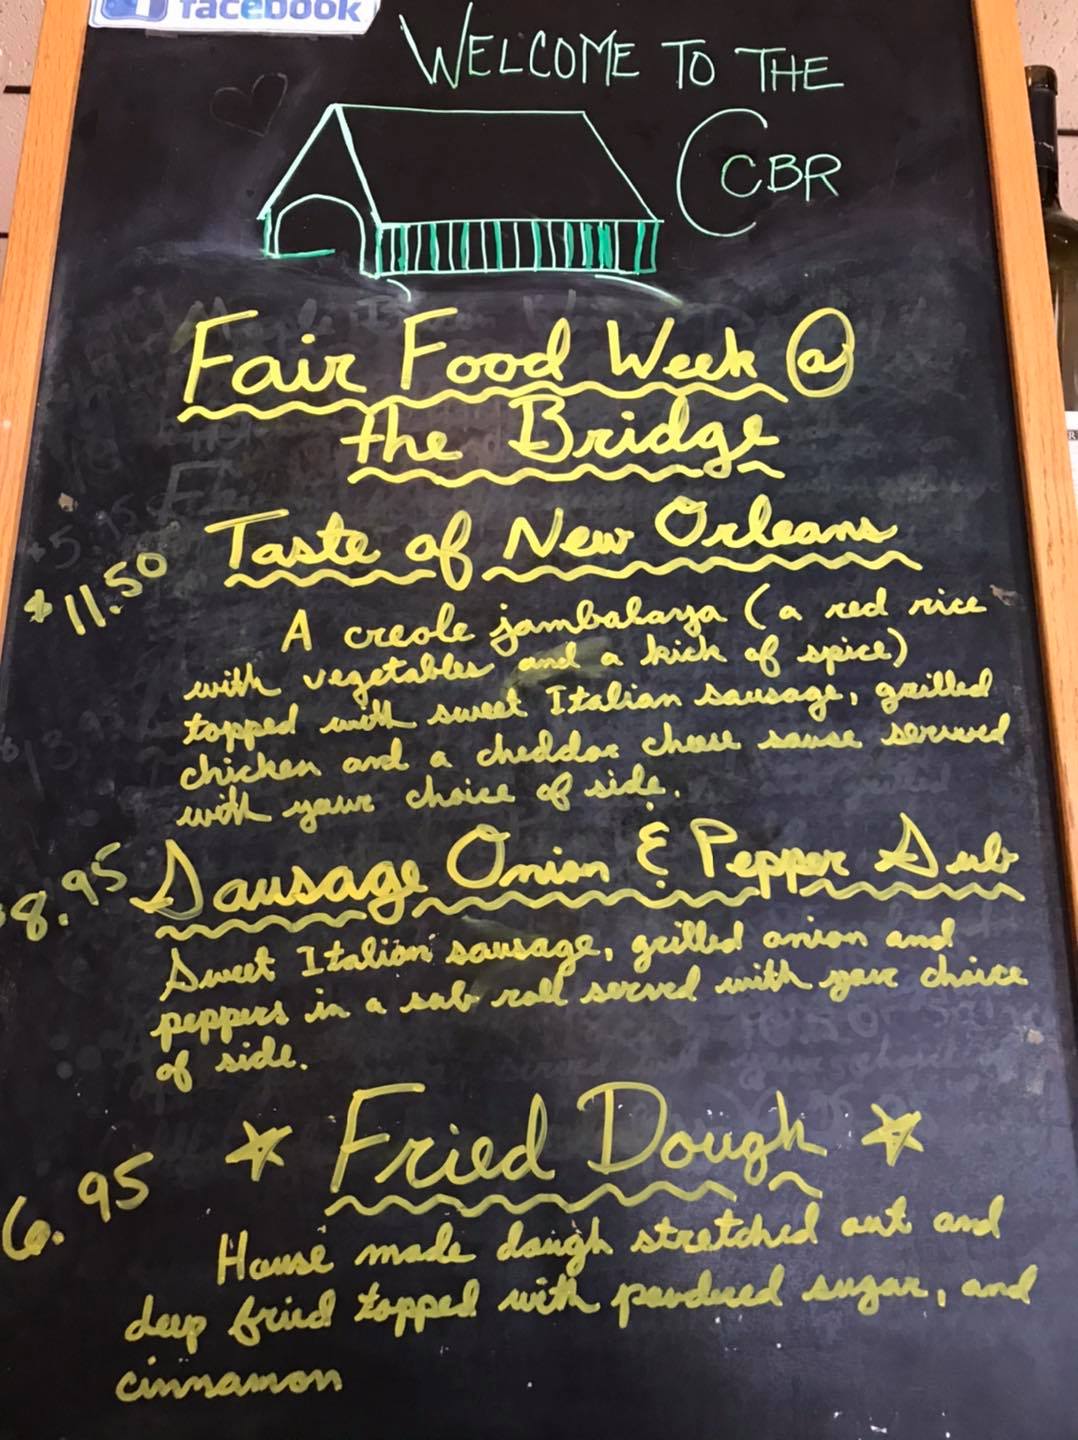 facebook
WELCOME TO THE
CCBR
Fair Food Week @
the Bridge
Taste of New Orleans
$11.50
A creole jambalaya (a red rice
with vegetables and a kick of spice)
topped with sweet Italian sausage, grilled
chicken and a cheddar cheese sauce served
with your choice of side.
8.95 Sausage Onion & Pepper Sub
Sweet Italian sausage, grilled onion and
peppers in a sub roll served with your choice
of side.
Fried Dough
6.95
House made dough stretched out and
deep fried topped with powdered sugar, and
cinnamon